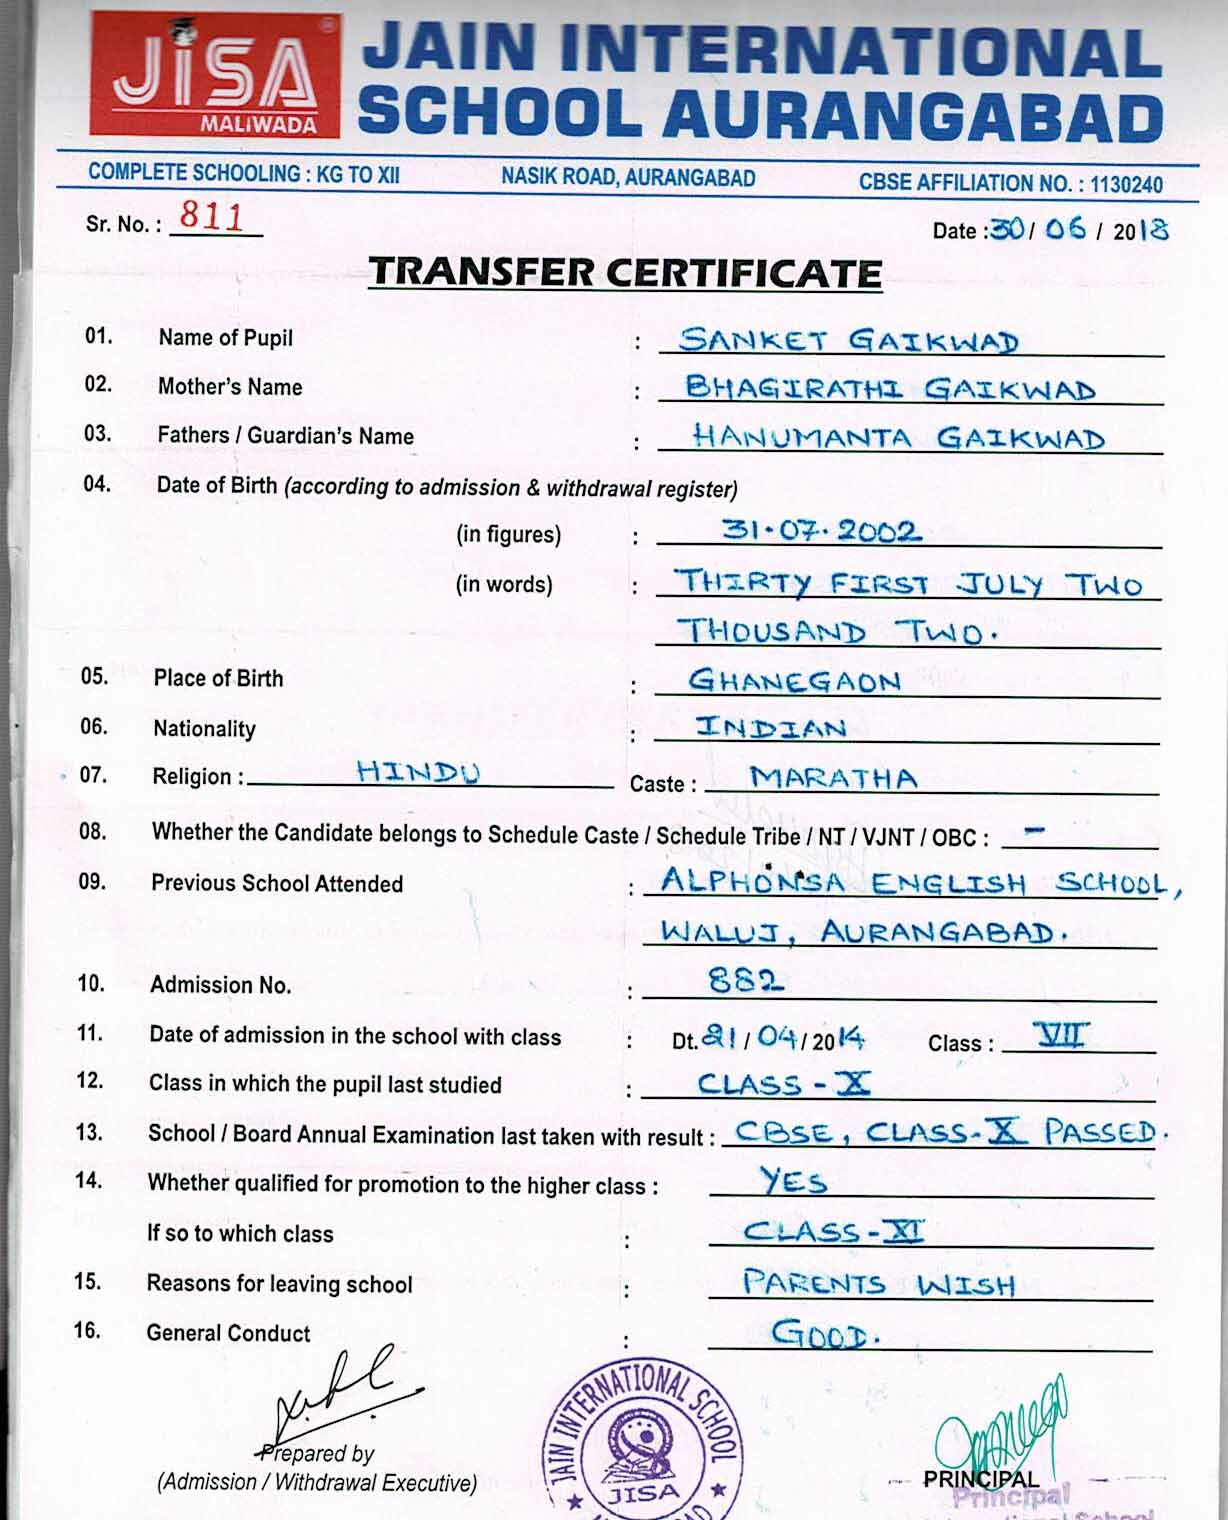 JiSA ®
MALiWADA
JAIN INTERNATIONAL
SCHOOL AURANGABAD
COMPLETE SCHOOLING : KG TO XII NASIK ROAD, AURANGABAD CBSE AFFILIATION NO. : 1130240
Sr. No. : 811 Date : 30 / 06 / 2018
TRANSFER CERTIFICATE
01. Name of Pupil : SANKET GAIKWAD
02. Mother's Name : BHAGIRATHI GAIKWAD
03. Fathers / Guardian's Name : HANUMANTA GAIKWAD
04. Date of Birth (according to admission & withdrawal register)
(in figures) : 31.07.2002
(in words) : THIRTY FIRST JULY TWO
THOUSAND TWO.
05. Place of Birth : GHANEGAON
06. Nationality : INDIAN
07. Religion : HINDU Caste : MARATHA
08. Whether the Candidate belongs to Schedule Caste / Schedule Tribe / NT / VJNT / OBC : -
09. Previous School Attended : ALPHONSA ENGLISH SCHOOL,
WALUJ, AURANGABAD.
10. Admission No. : 882
11. Date of admission in the school with class : Dt. 21 / 04 / 2014 Class : VII
12. Class in which the pupil last studied : CLASS - X
13. School / Board Annual Examination last taken with result : CBSE, CLASS-X PASSED.
14. Whether qualified for promotion to the higher class : YES
If so to which class : CLASS-XI
15. Reasons for leaving school : PARENTS WISH
16. General Conduct : GOOD.
JAIN INTERNATIONAL SCHOOL
JISA
Prepared by
(Admission / Withdrawal Executive)
PRINCIPAL
Principal